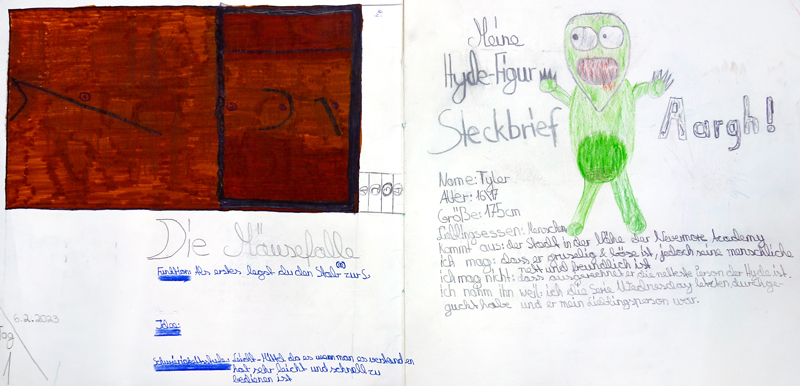 Die Mäusefalle
Funktion: Als erstes legst du den Stab zur
6.2.2023
Tag
1
Idee:
Schwierigkeitsstufe: Leicht-Mittel da es wenn man es verstanden
hat sehr leicht und schnell zu
bedienen ist
Meine
Hyde-Figur
Steckbrief
Aargh!
Name: Tyler
Alter: 16/17
Größe: 175cm
Lieblingsessen: Menschen
Kommt aus: der Stadt in der Nähe der Nevermore Academy
ich mag: dass er gruselig & böse ist, jedoch seine menschliche
nett und freundlich ist
ich mag nicht: dass ausgerechnet die netteste Person der Hyde ist.
ich nahm ihn weil ich die Serie Wednesday letztens durchge-
guckt habe und er mein Lieblingsperson war.